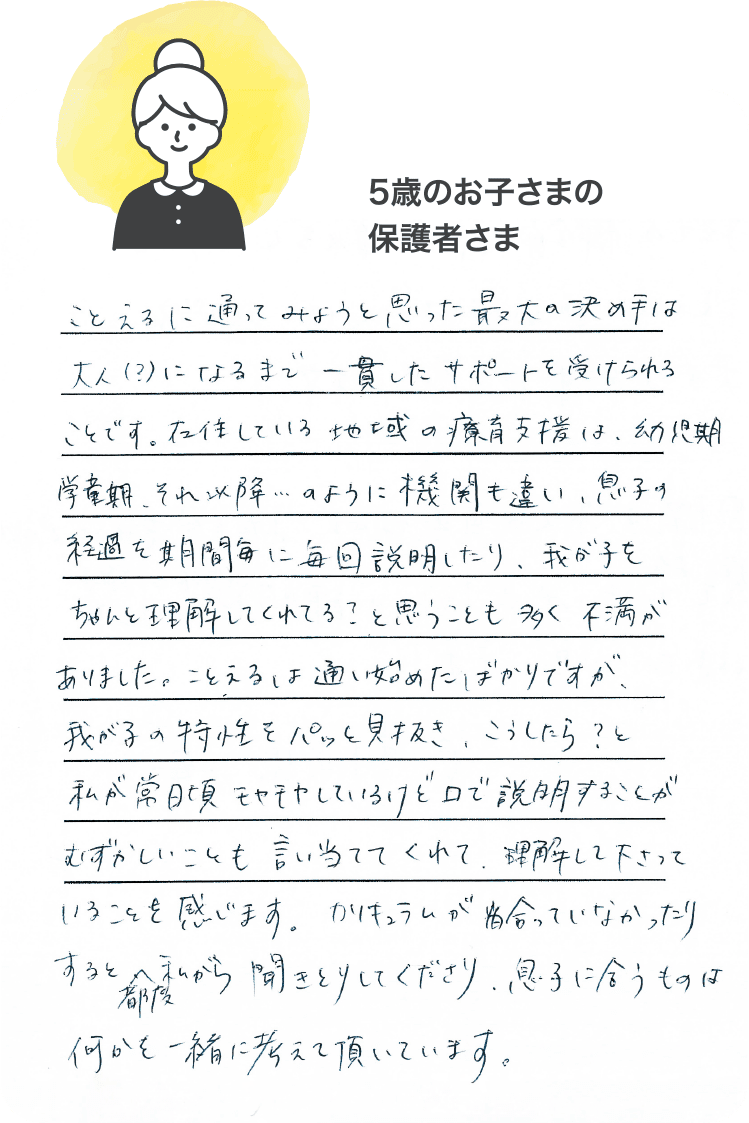 5歳のお子さまの
保護者さま
ことえるに通ってみようと思った最大の決め手は
大人(?)になるまで一貫したサポートを受けられる
ことです。在住している地域の療育支援は、幼児期
学童期、それ以降…のように機関も違い、息子の
経過を期間毎に毎回説明したり、我が子を
ちゃんと理解してくれてる?と思うことも多く不満が
ありました。ことえるは通い始めたばかりですが、
我が子の特性をパッと見抜き、こうしたら?と
私が常日頃モヤモヤしているけど口で説明することが
むずかしいことも言い当ててくれて、理解して下さって
いることを感じます。カリキュラムが合っていなかったり
すると都度私から聞きとりしてくださり、息子に合うものは
何かを一緒に考えて頂いています。